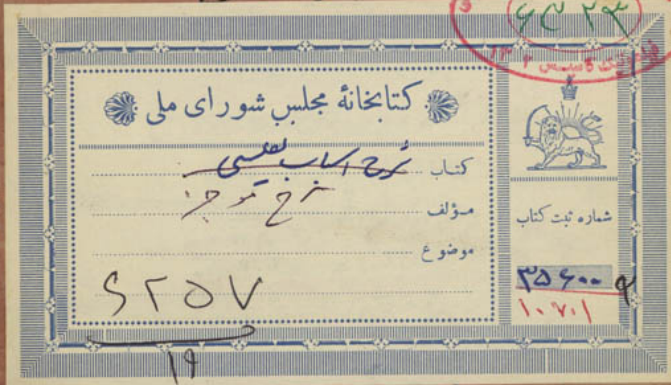 ۶۴۲۳
کتابخانهٔ مجلس شورای ملی
کتاب شرح اسباب نفیسی
مؤلف شرح موجز
موضوع
۶۲۵۷
۱۹
شماره ثبت کتاب
۳۵۶۰۰
۱۰۷۰۱